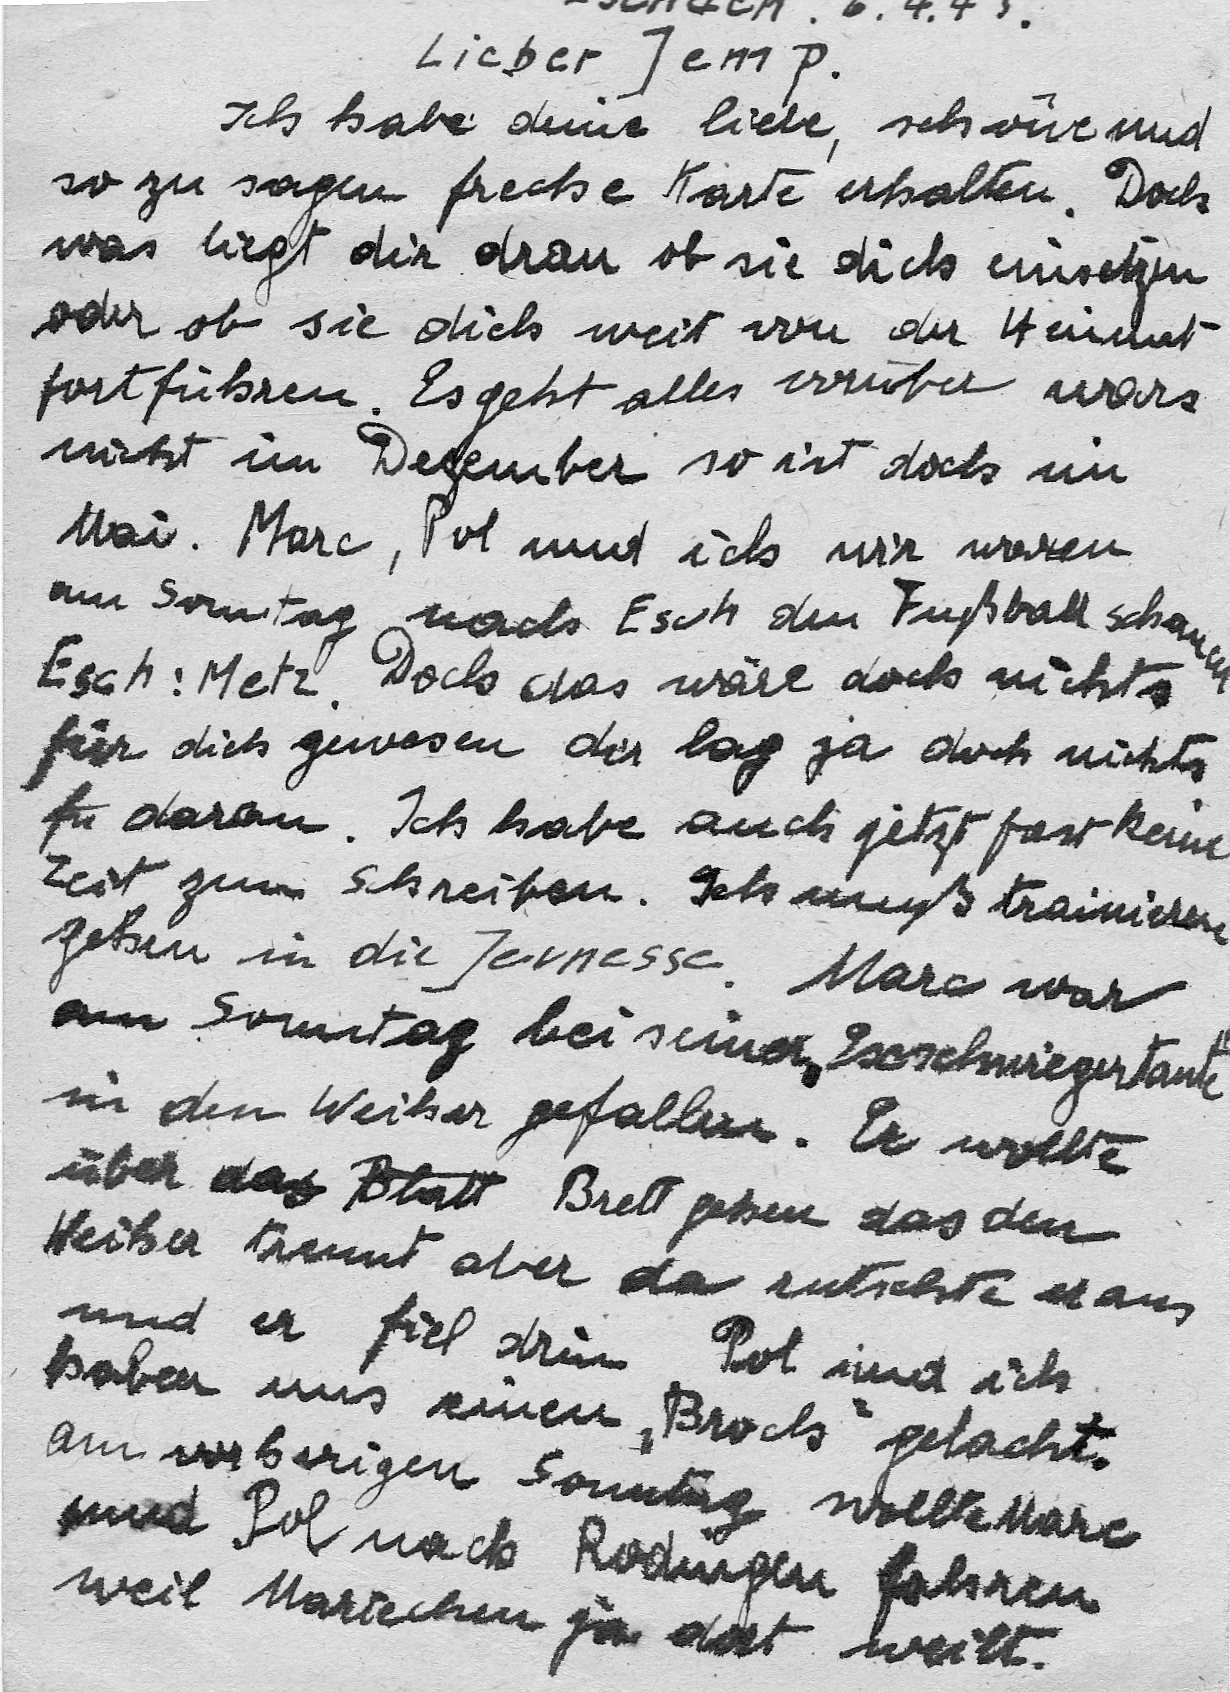 6.4.43.
Lieber Jemp.
Ich habe deine liebe, schöne und
so zu sagen freche Karte erhalten. Doch
was liegt dir dran ob sie dich einsetzen
oder ob sie dich weit von der Heimat
fortführen. Es geht alles vorüber wars
nicht im Dezember so ist doch im
Mai. Marc, Pol und ich wir waren
am Sonntag nach Esch den Fußball schauen
Esch : Metz. Doch das wäre doch nichts
für dich gewesen dir lag ja doch nichts
daran. Ich habe auch jetzt fast keine
Zeit zum Schreiben. Ich muß trainieren
gehen in die Jeunesse. Marc war
am Sonntag bei seiner „Eschschwiegertante“
in den Weiher gefallen. Er wollte
über das Blatt Brett gehen das den
Weiher trennt aber da rutschte er aus
und er fiel drin Pol und ich
haben uns einen „Broch“ gelacht.
Am vorherigen Sonntag wollte Marc
und Pol nach Rodingen fahren
weil Mariechen ja dort weilt.